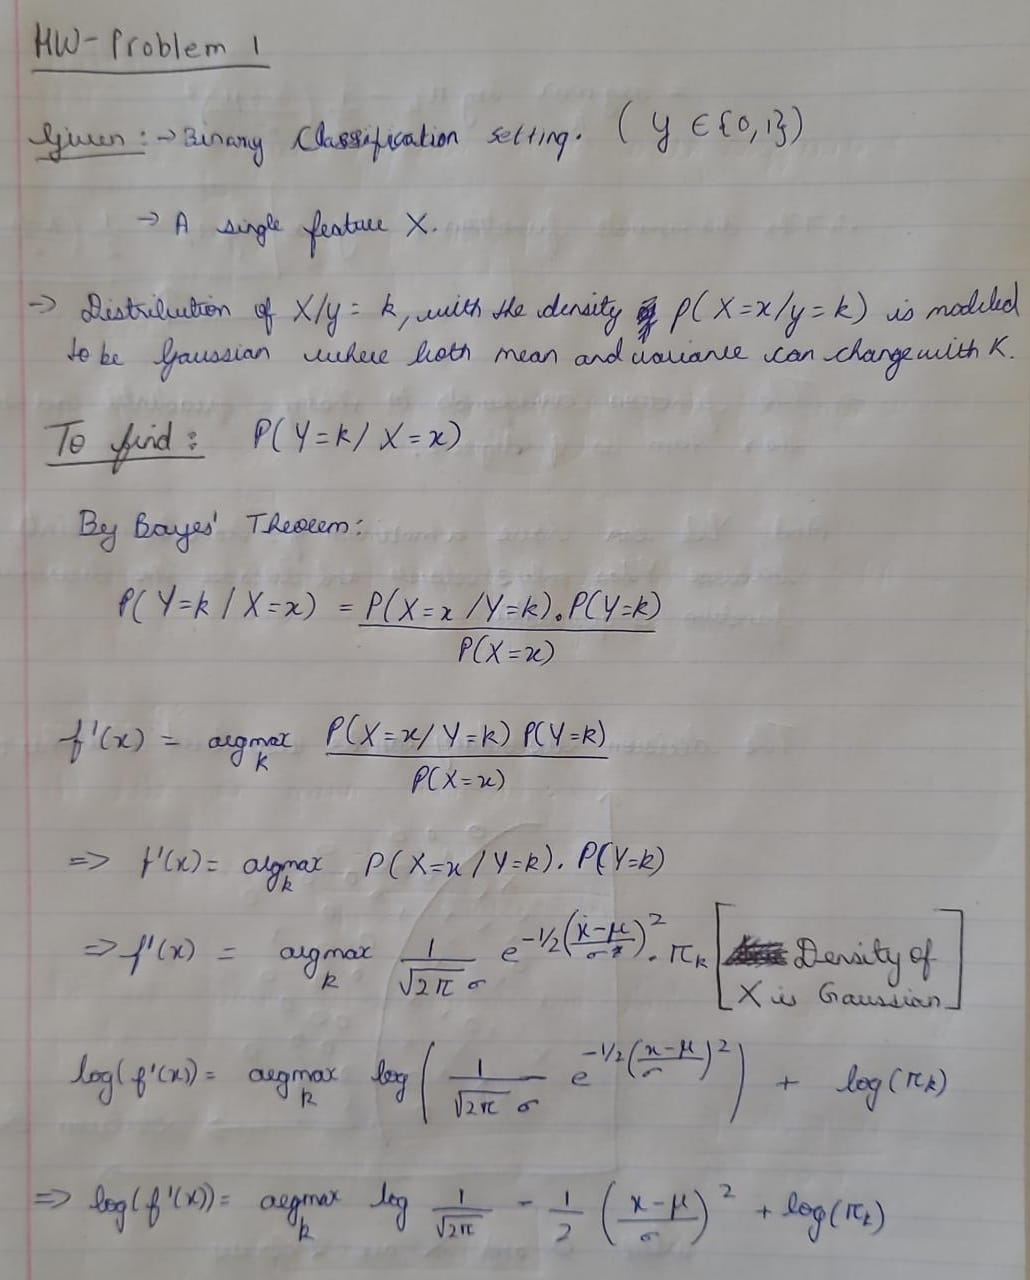 HW-Problem 1
Given: → Binary Classification setting. (y ∈ {0,1})
→ A single feature X.
→ Distribution of X/y = k, with the density p(X=x/y=k) is modeled
to be Gaussian where both mean and variance can change with K.
To find: P(Y=k/X=x)
By Bayes' Theorem:
P(Y=k/X=x) = P(X=x/Y=k).P(Y=k) / P(X=x)
f'(x) = argmax_k P(X=x/Y=k) P(Y=k) / P(X=x)
=> f'(x) = argmax_k P(X=x/Y=k). P(Y=k)
=> f'(x) = argmax_k 1/(√2π σ) e^(-1/2((x-μ)/σ)^2) . π_k [Density of X is Gaussian]
log(f'(x)) = argmax_k log(1/(√2π σ) e^(-1/2((x-μ)/σ)^2)) + log(π_k)
=> log(f'(x)) = argmax_k log 1/√2π - 1/2 ((x-μ)/σ)^2 + log(π_k)